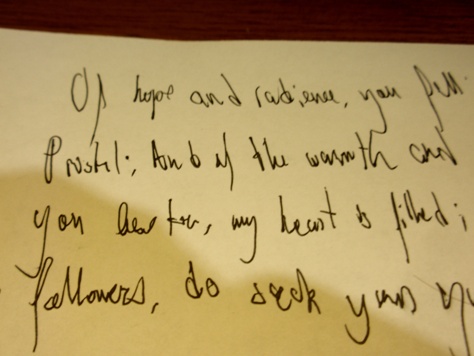 Of hope and radience, you fell.
And of the warmth and
you, my heart is filled;
followers, do seek yours